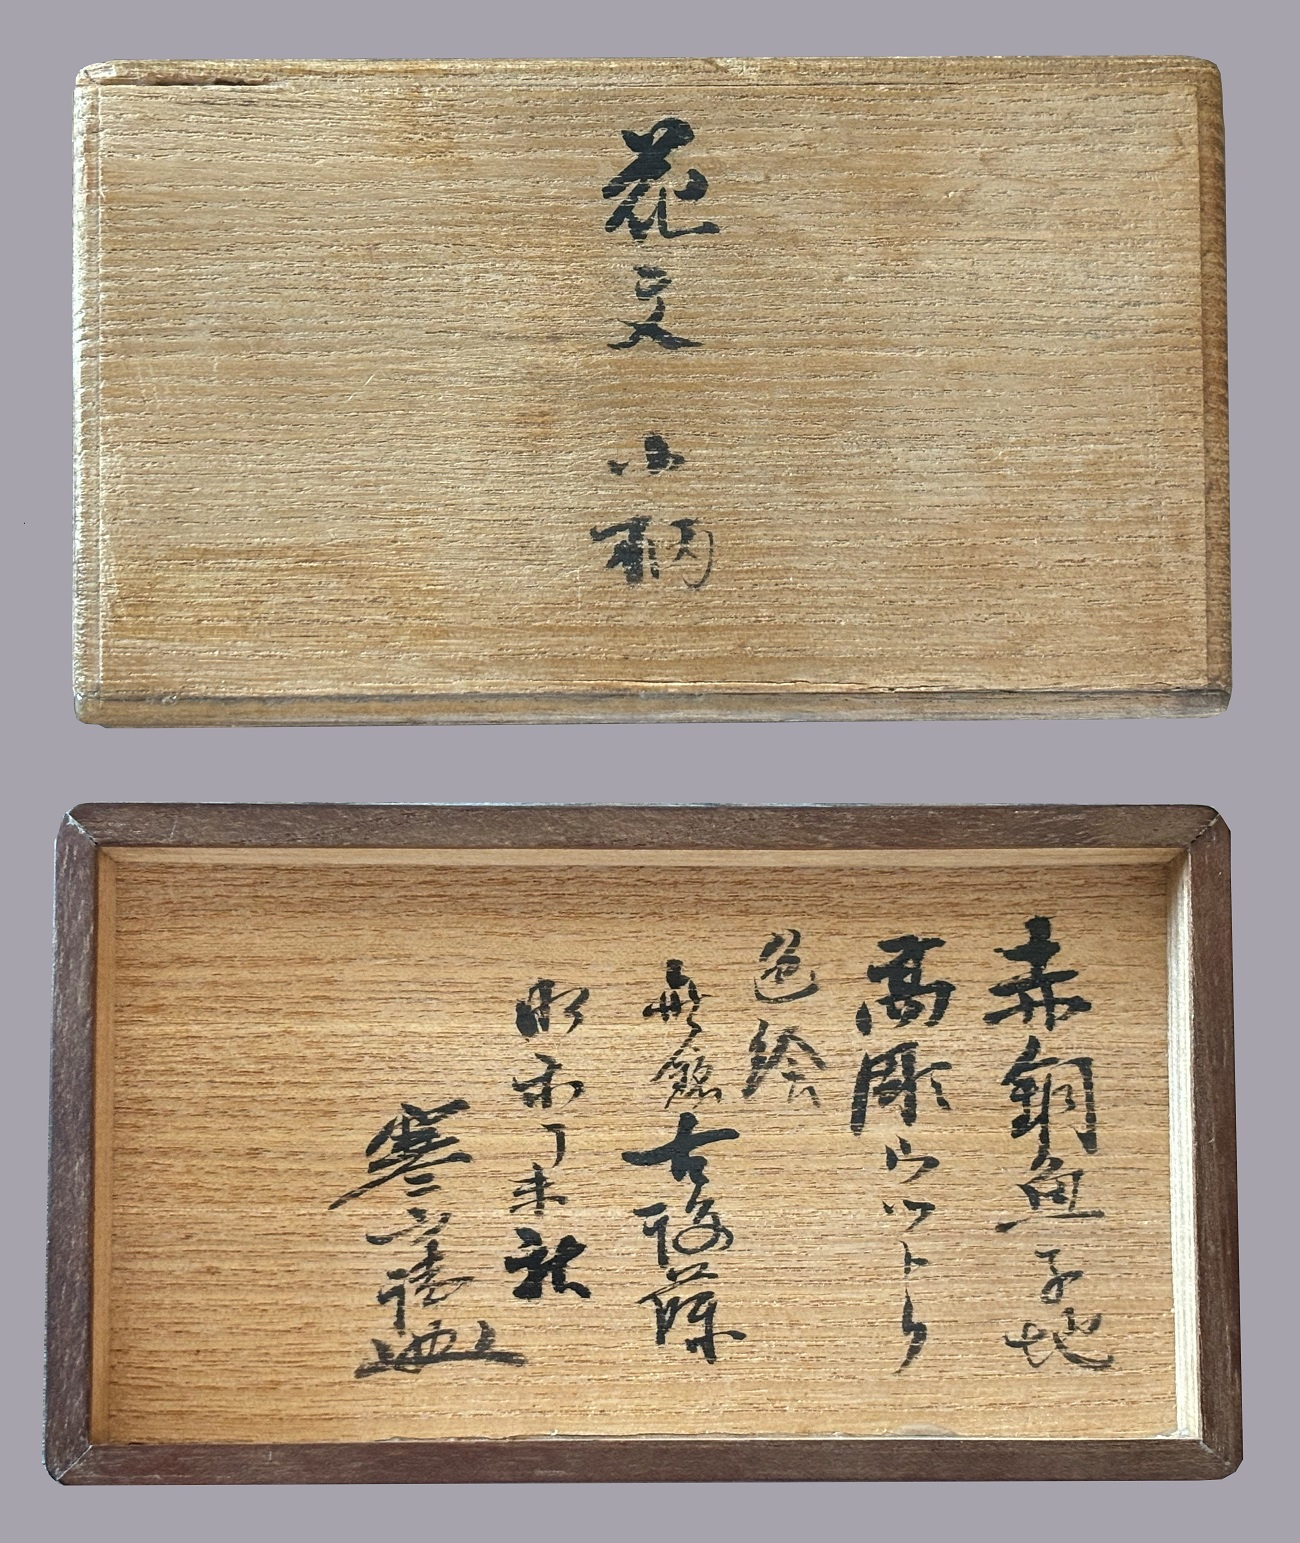 花文 小柄
赤銅魚子地
高彫ウットリ
色絵
無銘古後藤
昭和丁未秋
寒山誌